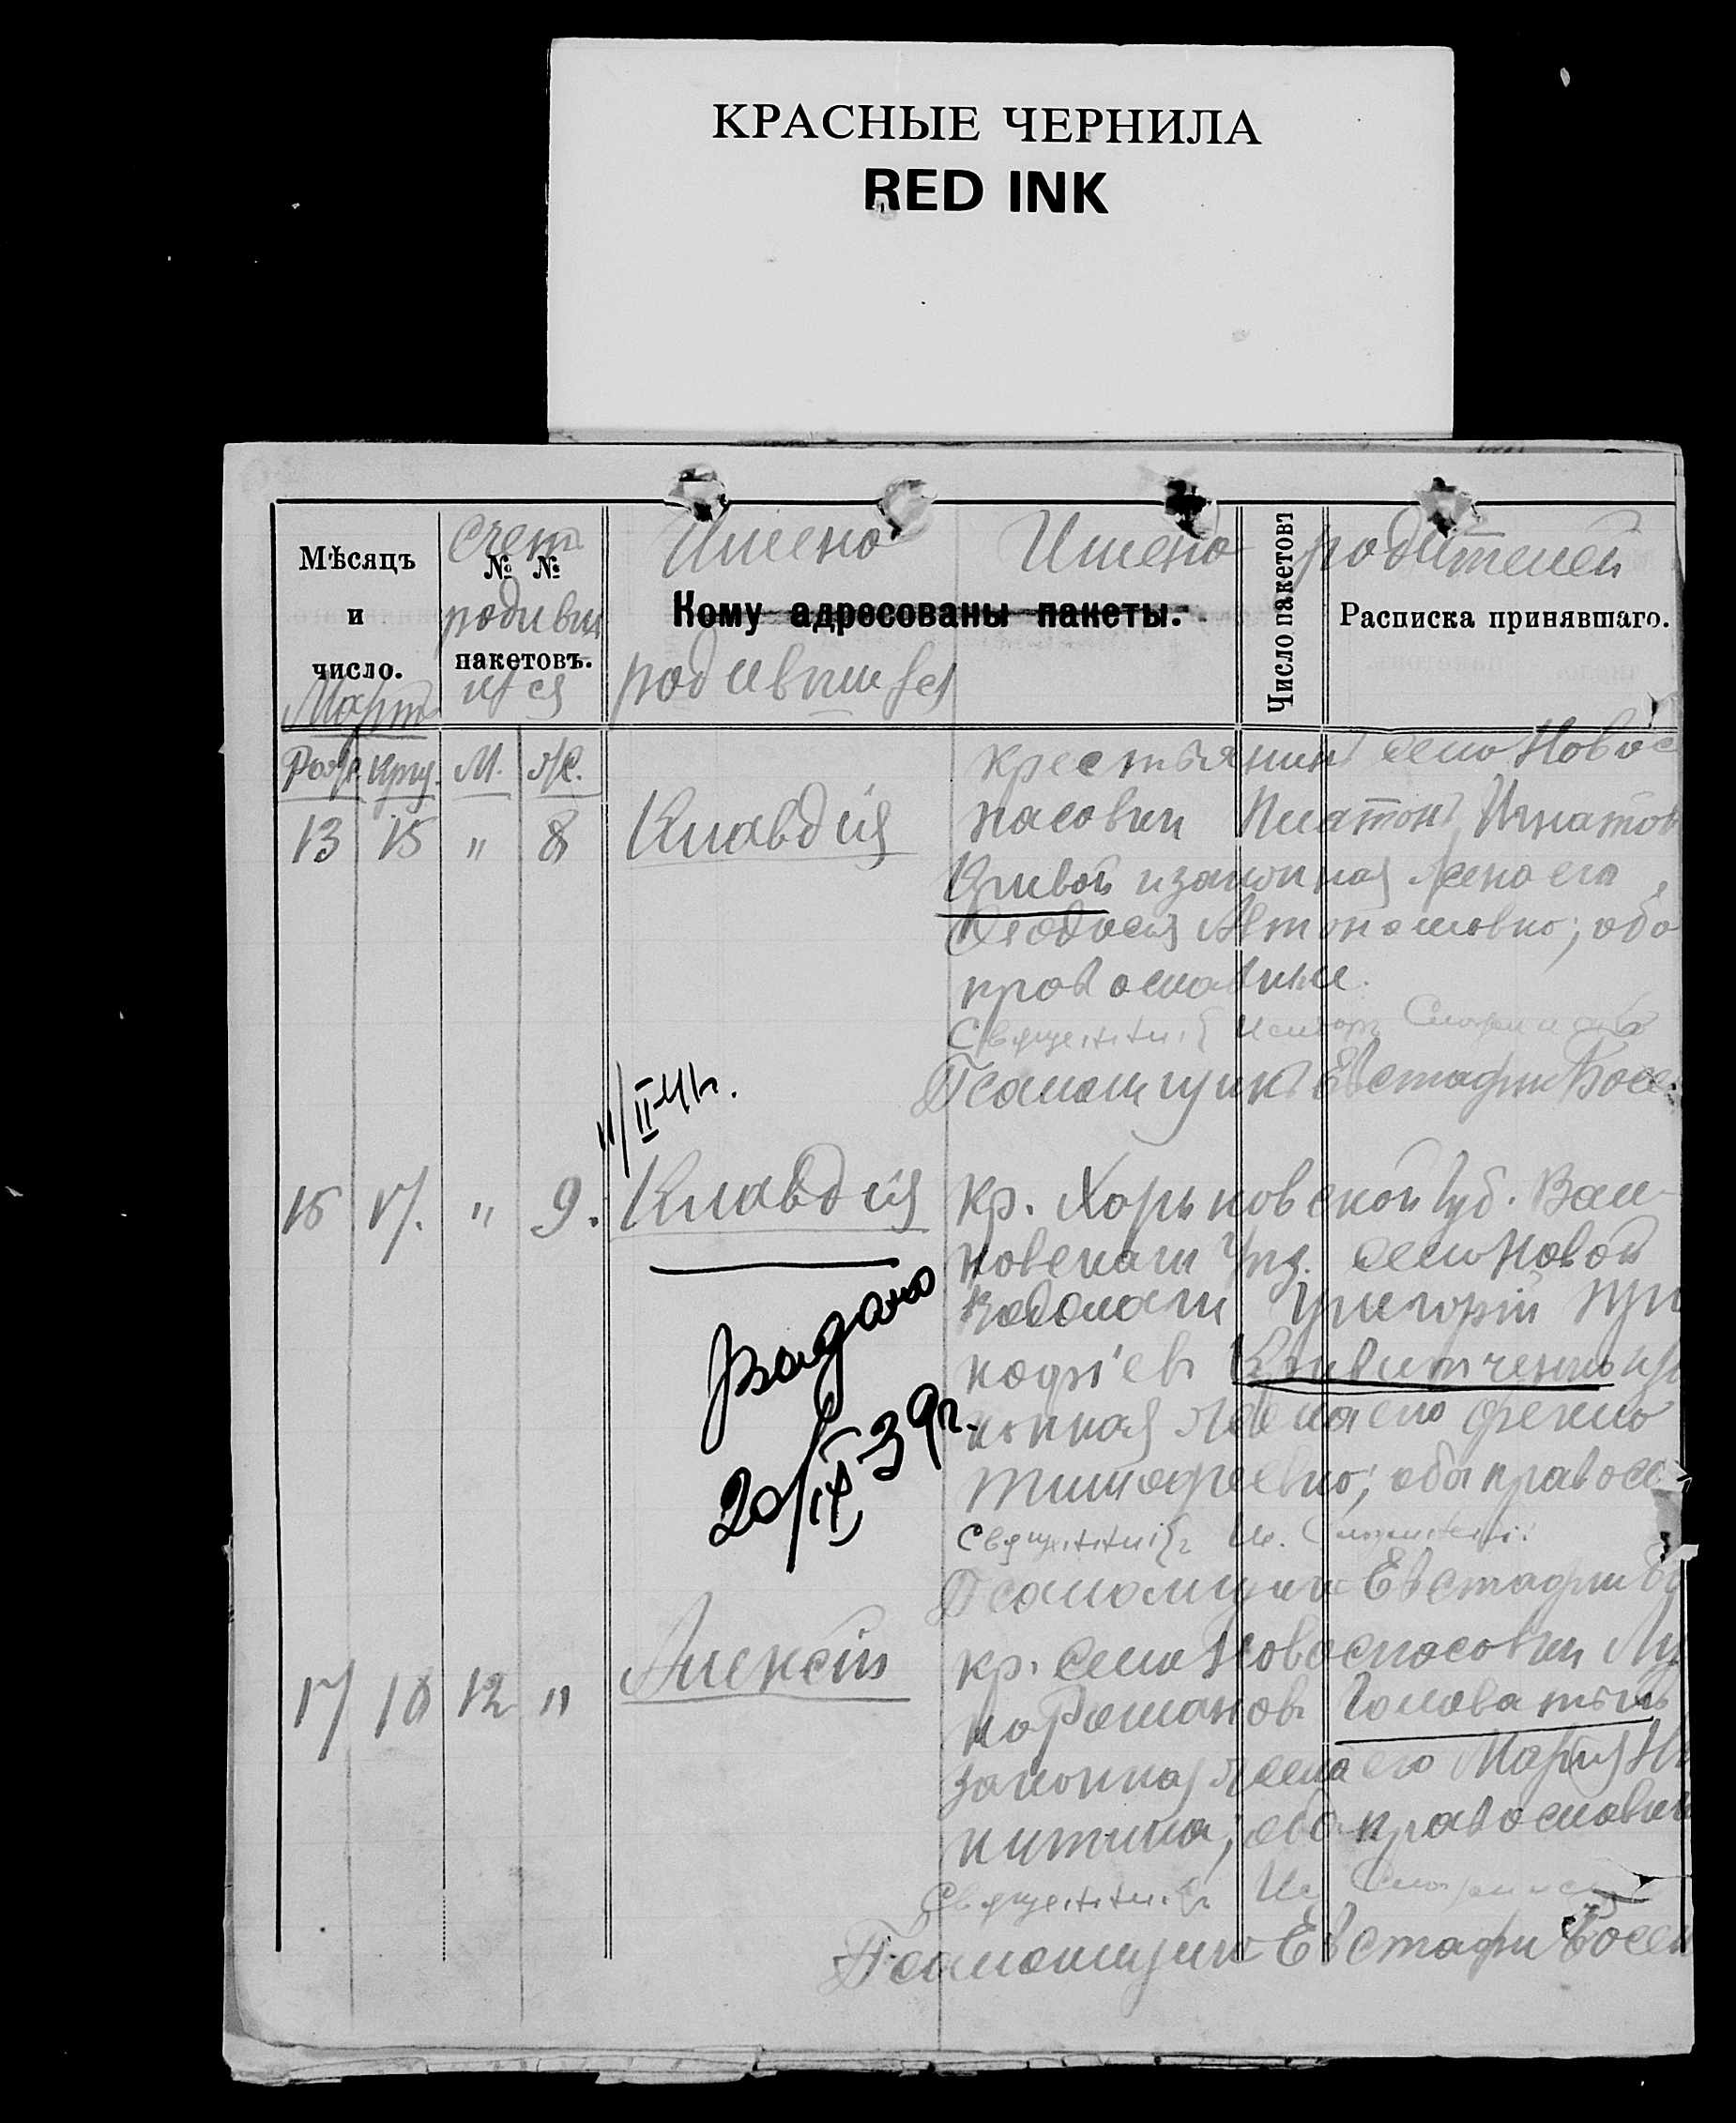 КРАСНЫЕ ЧЕРНИЛА
RED INK
Мѣсяцъ
и
число.
Март
счет
№ №
родивш
пакетовъ.
ихся
Имена
Кому адресованы пакеты.
родившихся
Имена родителей
Число пакетовъ
Расписка принявшаго.
Рож. Крещ. М. Ж.
13 15 " 8 Клавдія
крестьянинъ села Новос
пасовки Платонъ Игнатов
Кривой и законная жена его
Феодосія Автономовна; оба
православные.
Священникъ
Псаломщикъ Евстафій
11/II-41г.
15 17. " 9. Клавдія
кр. Харьковской губ. Вал-
ковскаго уѣз. села Новой
Водолаги Григорій
его
Тимофеевна; оба правосл
Священникъ
Псаломщикъ Евстафій
Видано
20/IX 39г.
17 18 12 " Алексѣй
кр. села Новоспасовки Лу
ка Романовъ Головатый
законная жена его Марія Ни
китина; оба православн
Священникъ
Псаломщикъ Евстафій